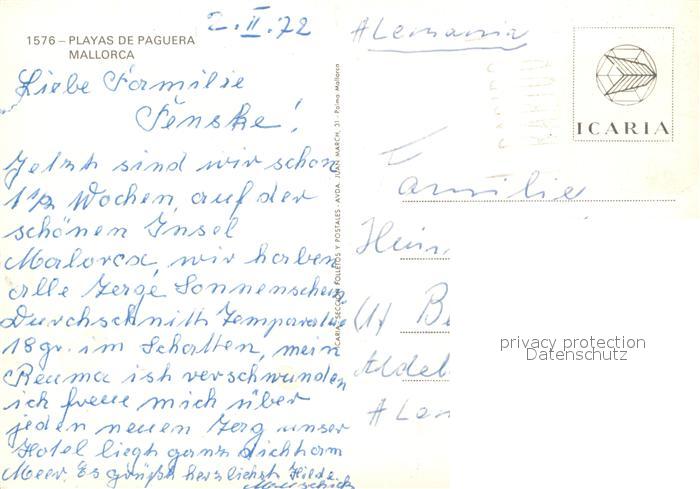 2. II. 72
1576 – PLAYAS DE PAGUERA
MALLORCA
Liebe Familie
Fenske!
Jetzt sind wir schon
1½ Wochen auf der
schönen Insel
Malorca, wir haben
alle Zerge Sonnenschein
Durchschnitt Temparatur
18 gr. im Schatten, mein
Reuma ist verschwunden
ich freue mich über
jeden neuen Zerg unser
Hotel liegt ganz dicht am
Meer. Es grüßt herzlichst Hilde
ICARIA, SECCION FOLLETOS Y POSTALES - AVDA. JUAN MARCH, 31 - Palma Mallorca
ALemania
ICARIA
Familie
Hein
Be
Aldeb
privacy protection
Datenschutz